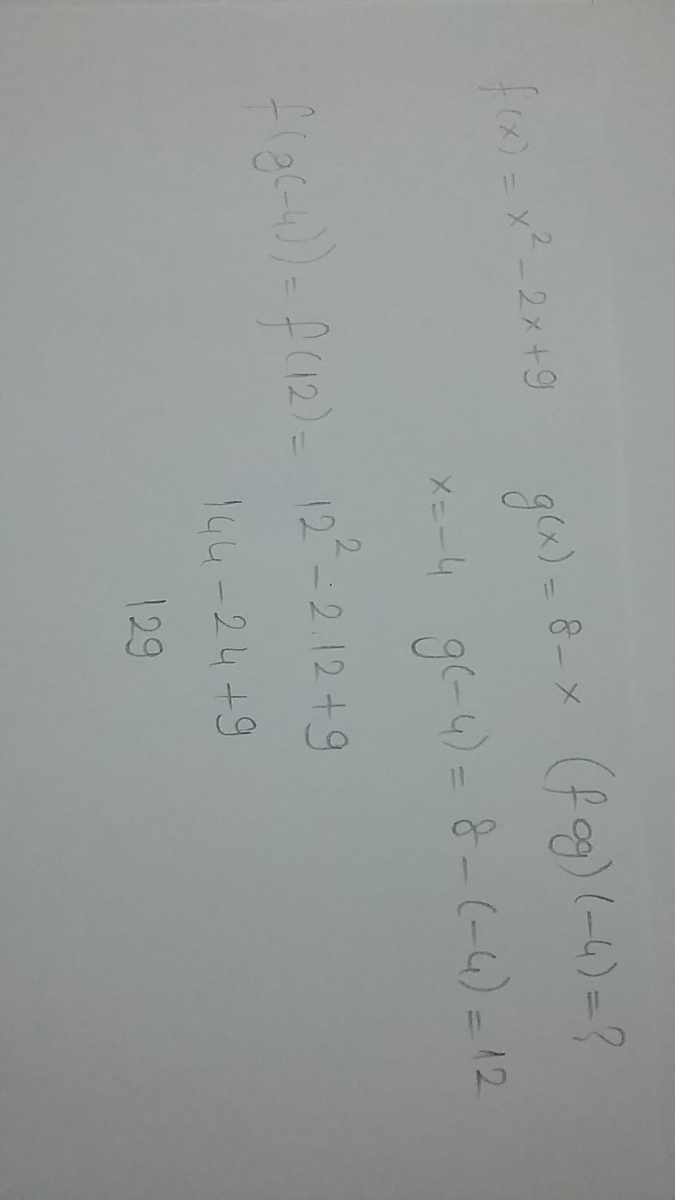 f(x) = x² - 2x + 9   g(x) = 8 - x   (fog)(-4) = ?
x = -4   g(-4) = 8 - (-4) = 12
f(g(-4)) = f(12) = 12² - 2.12 + 9
144 - 24 + 9
129